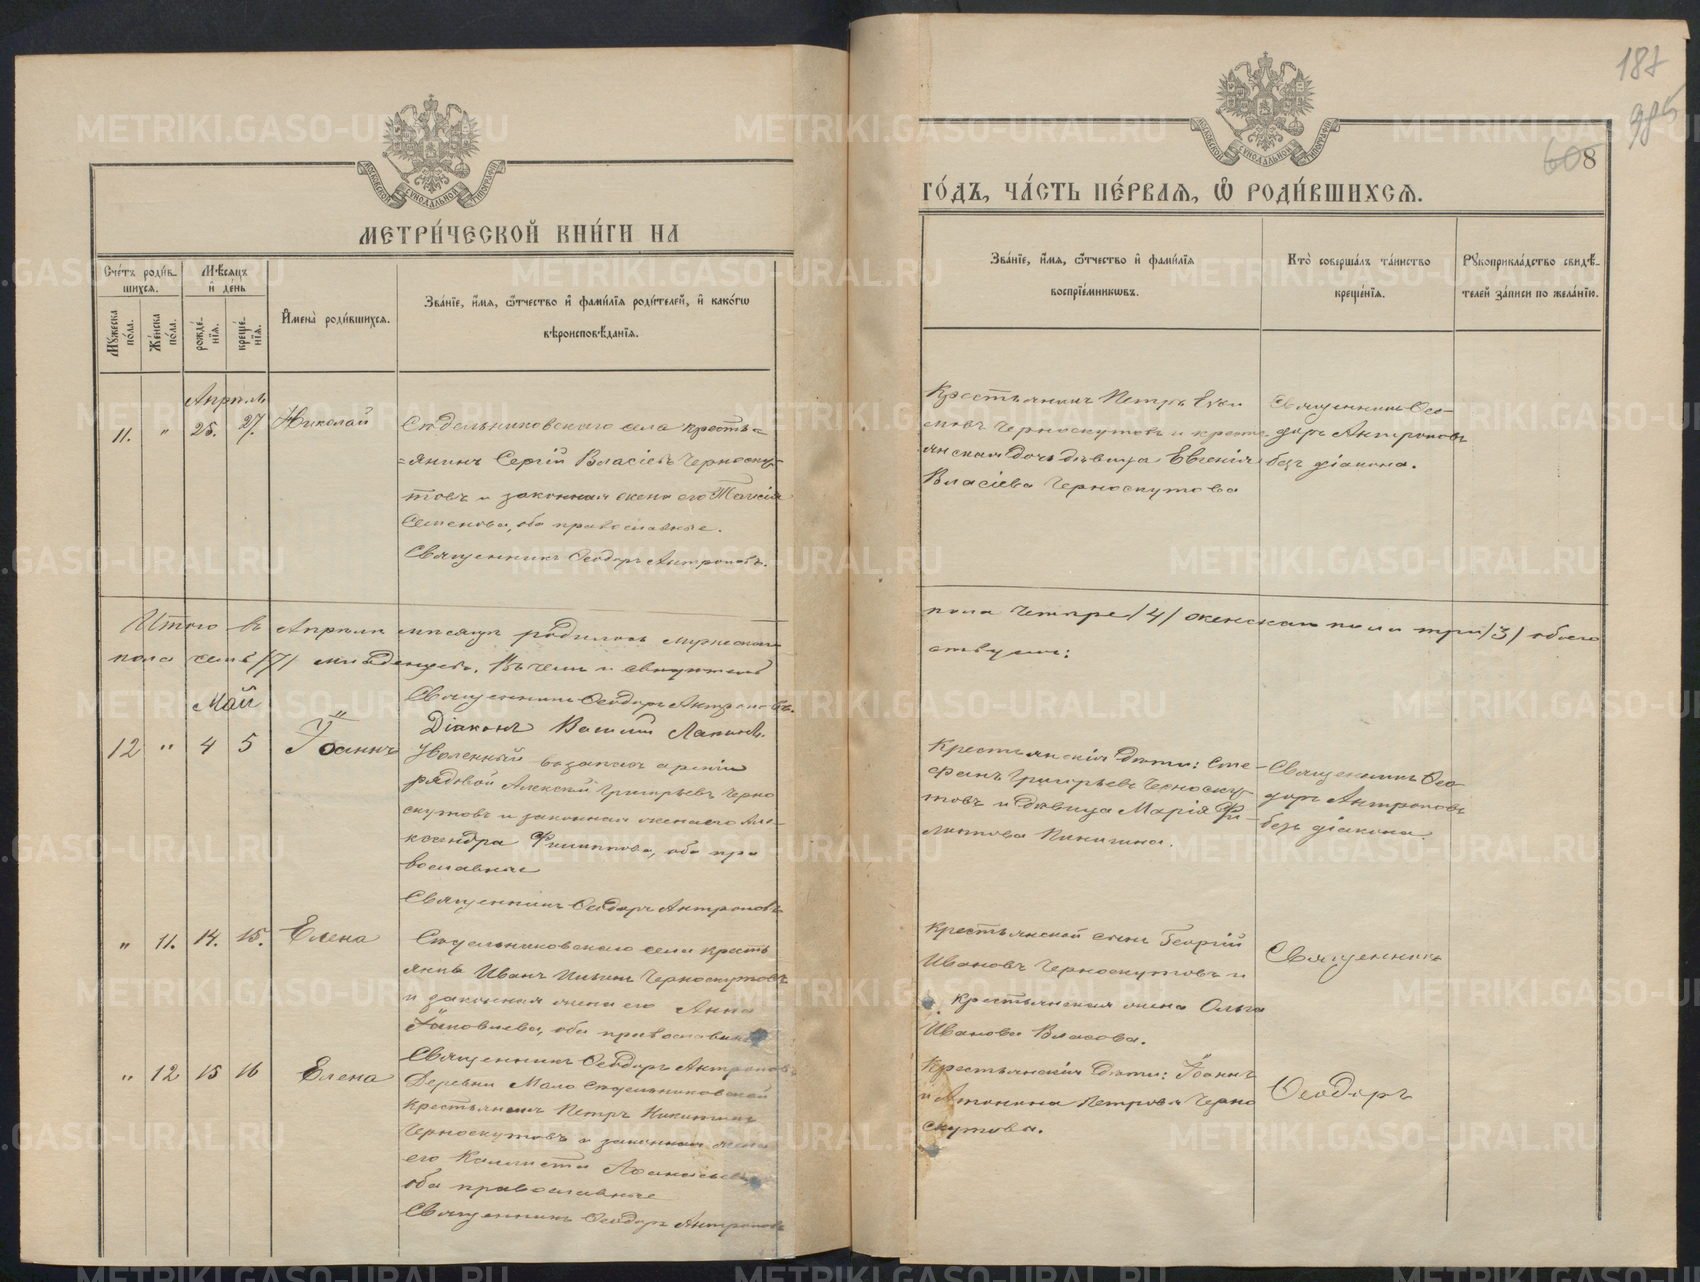 187
985
608
МЕТРИ́ЧЕСКОЙ КНИ́ГИ НА
ГО́ДЪ, ЧА́СТЬ ПЕ́РВАЯ, Ѿ РОДИ́ВШИХСЯ.
Сче́тъ роди́в-
шихся.
Мѣ́сяцъ
и день
Му́жеска по́ла.
Же́нска по́ла.
рожде́-
нїя.
креще́-
нїя.
И́мена̀ роди́вшихся.
Зва́нїе, и́мя, ѿтчество и фами́лїя роди́телей, и како́гѡ
вѣроисповѣ́данїя.
Зва́нїе, и́мя, ѿтчество и фами́лїя
воспрїе́мникѡвъ.
Кто̀ соверша́лъ та́инство
креще́нїя.
Рукоприкла́дство свидѣ́-
телей за́писи по жела́нїю.
Апрѣль
11. " 25. 27. Николай
Сѣдельниковскаго села кресть=
=янинъ Сергій Власіевъ Черноску-
товъ и законная жена его Таисія
Семенова, оба православные.
Священникъ Ѳеодоръ Антроповъ.
Крестьянинъ Петръ
мовъ Черноскутовъ и кресть-
янская дочь дѣвица Евгенія
Власіева Черноскутова
Священникъ Ѳео-
доръ Антроповъ
безъ діакона.
Итого въ Апрѣлѣ мѣсяцѣ родилось мужескаго
пола четыре /4/ женскаго пола три /3/ обоего
пола семь /7/ младенцевъ. Въ чемъ и свидѣтель-
ствуемъ:
Священникъ Ѳеодоръ Антроповъ.
Діаконъ Василій Лапинъ.
Май
12 " 4 5 Іоаннъ
Уволенный въ запасъ арміи
рядовой Алексій Григорьевъ Черно
скутовъ и законная жена его Але-
ксандра Филиппова, оба пра
вославные
Священникъ Ѳеодоръ Антроповъ
Крестьянскія дѣти: Сте-
фанъ Григорьевъ Черноску-
товъ и дѣвица Марія Фи-
Священникъ Ѳео-
доръ Антроповъ
безъ діакона.
" 11. 14. 15. Елена
Сѣдельниковскаго села кресть
янинъ Иванъ Ильинъ Черноскутовъ
и законная жена его Анна
Іаковлева, оба православные
Священникъ Ѳеодоръ Антроповъ
Крестьянской сынъ Георгій
Ивановъ Черноскутовъ и
крестьянская жена Ольга
Иванова Власова.
Священникъ
" 12 15 16 Елена
Деревни Мало Сѣдельниковской
Крестьянинъ Петръ Никитинъ
Черноскутовъ и законная жена
его Каллиста Аѳанасьева
оба православные
Священникъ Ѳеодоръ Антроповъ
Крестьянскія дѣти: Іоаннъ
и Антонина Петровы Черно
скутовы.
Ѳеодоръ
METRIKI.GASO-URAL.RU